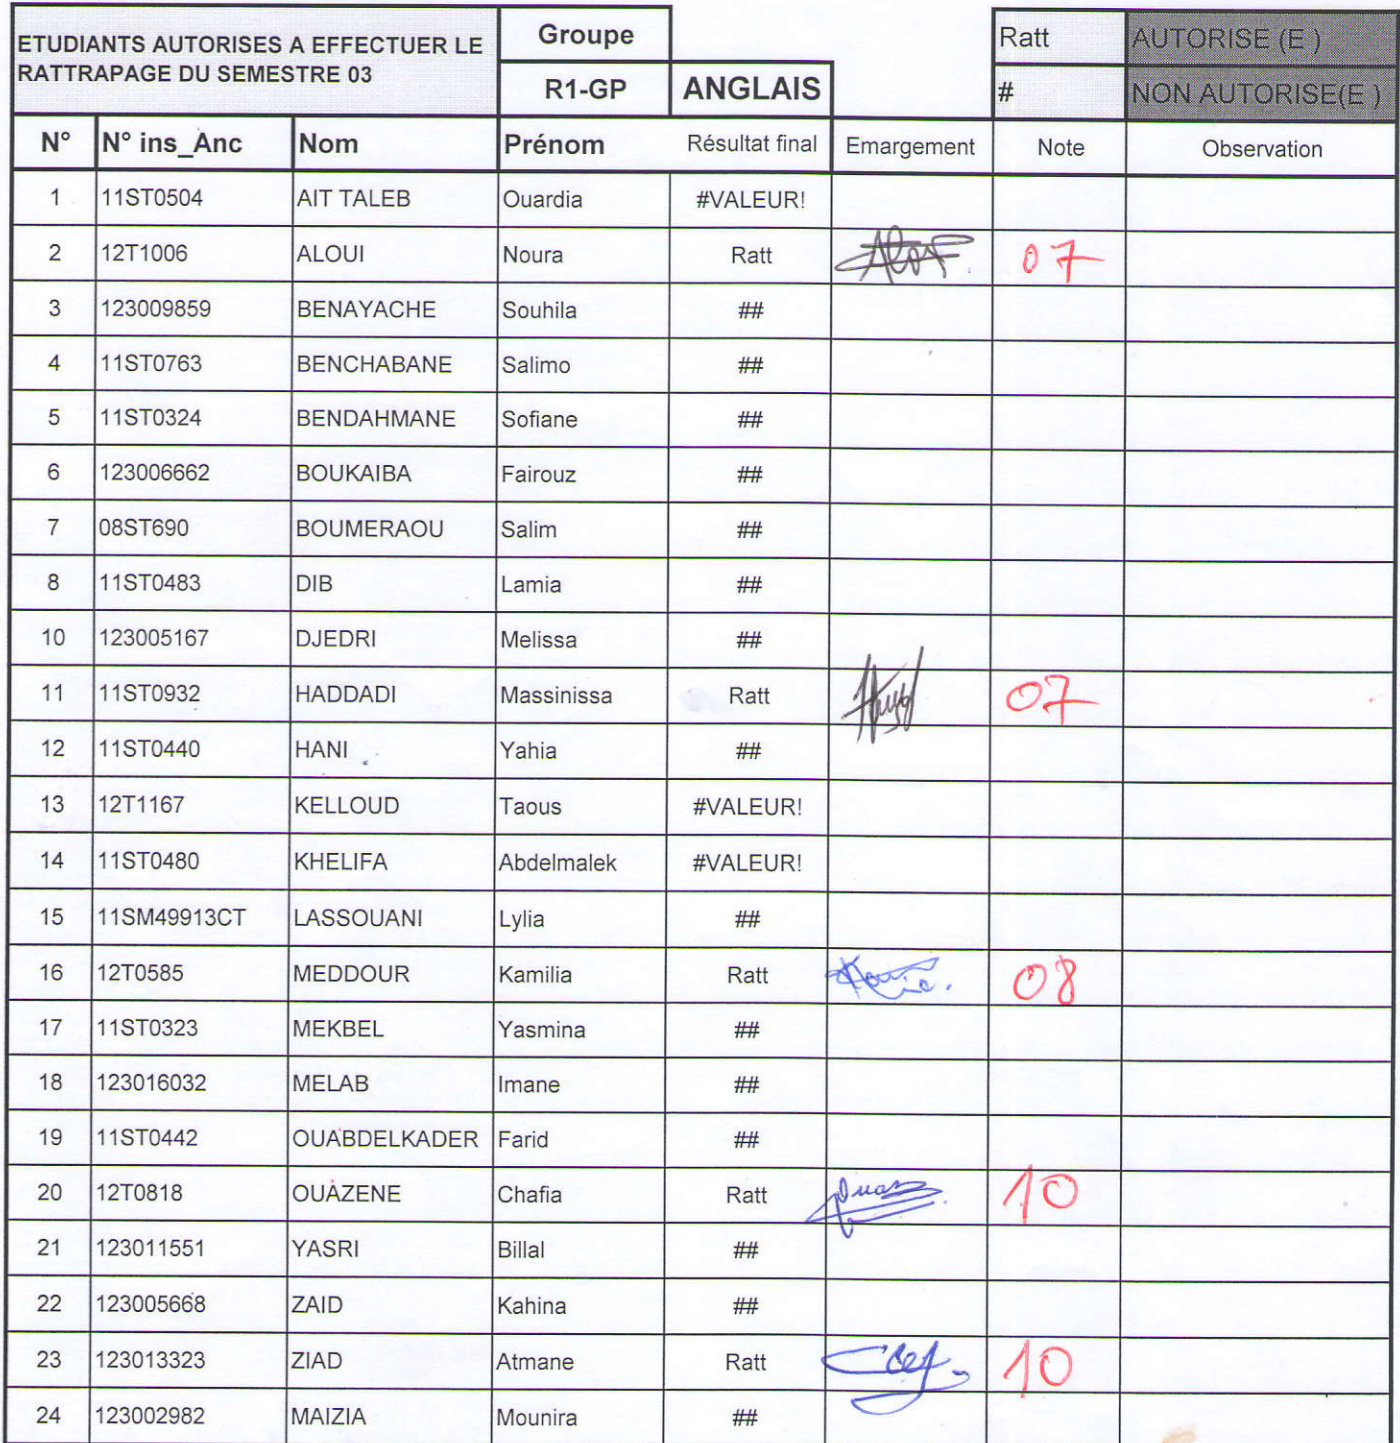 ETUDIANTS AUTORISES A EFFECTUER LE RATTRAPAGE DU SEMESTRE 03 Groupe Ratt AUTORISE (E )
R1-GP ANGLAIS # NON AUTORISE(E )
N° N° ins_Anc Nom Prénom Résultat final Emargement Note Observation
1 11ST0504 AIT TALEB Ouardia #VALEUR!
2 12T1006 ALOUI Noura Ratt 07
3 123009859 BENAYACHE Souhila ##
4 11ST0763 BENCHABANE Salimo ##
5 11ST0324 BENDAHMANE Sofiane ##
6 123006662 BOUKAIBA Fairouz ##
7 08ST690 BOUMERAOU Salim ##
8 11ST0483 DIB Lamia ##
10 123005167 DJEDRI Melissa ##
11 11ST0932 HADDADI Massinissa Ratt 07
12 11ST0440 HANI Yahia ##
13 12T1167 KELLOUD Taous #VALEUR!
14 11ST0480 KHELIFA Abdelmalek #VALEUR!
15 11SM49913CT LASSOUANI Lylia ##
16 12T0585 MEDDOUR Kamilia Ratt 08
17 11ST0323 MEKBEL Yasmina ##
18 123016032 MELAB Imane ##
19 11ST0442 OUABDELKADER Farid ##
20 12T0818 OUAZENE Chafia Ratt 10
21 123011551 YASRI Billal ##
22 123005668 ZAID Kahina ##
23 123013323 ZIAD Atmane Ratt 10
24 123002982 MAIZIA Mounira ##